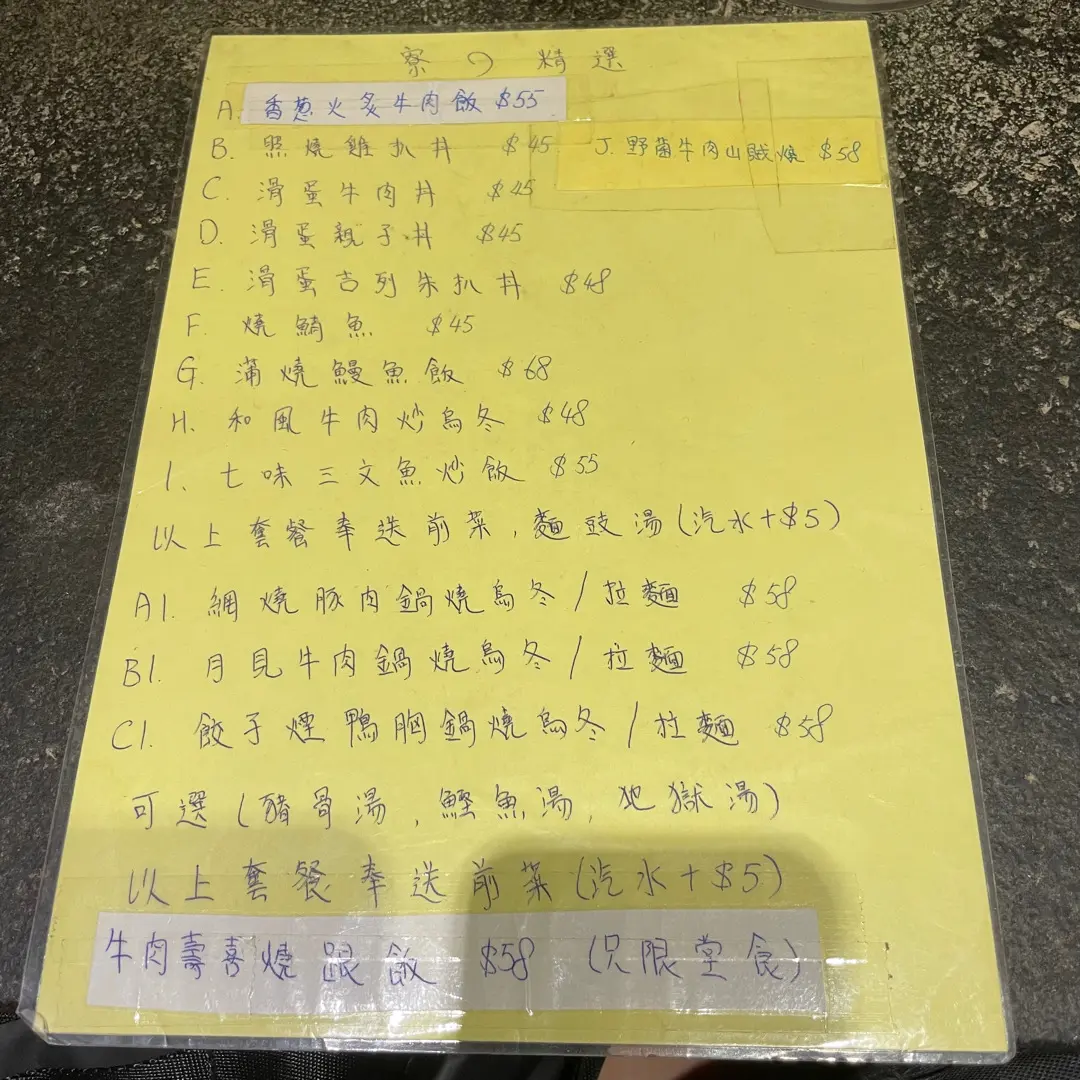 寮の精選
A. 香葱火炙牛肉飯 $55
B. 照燒雞扒丼 $45
J. 野菌牛肉山賊燒 $58
C. 滑蛋牛肉丼 $45
D. 滑蛋親子丼 $45
E. 滑蛋吉列朱扒丼 $48
F. 燒鯖魚 $45
G. 蒲燒鰻魚飯 $68
H. 和風牛肉炒烏冬 $48
I. 七味三文魚炒飯 $55
以上套餐奉送前菜, 麵豉湯(汽水+$5)
A1. 網燒豚肉鍋燒烏冬/拉麵 $58
B1. 月見牛肉鍋燒烏冬/拉麵 $58
C1. 餃子煙鴨胸鍋燒烏冬/拉麵 $58
可選(豬骨湯, 鰹魚湯, 地獄湯)
以上套餐奉送前菜(汽水+$5)
牛肉壽喜燒跟飯 $58 (只限堂食)